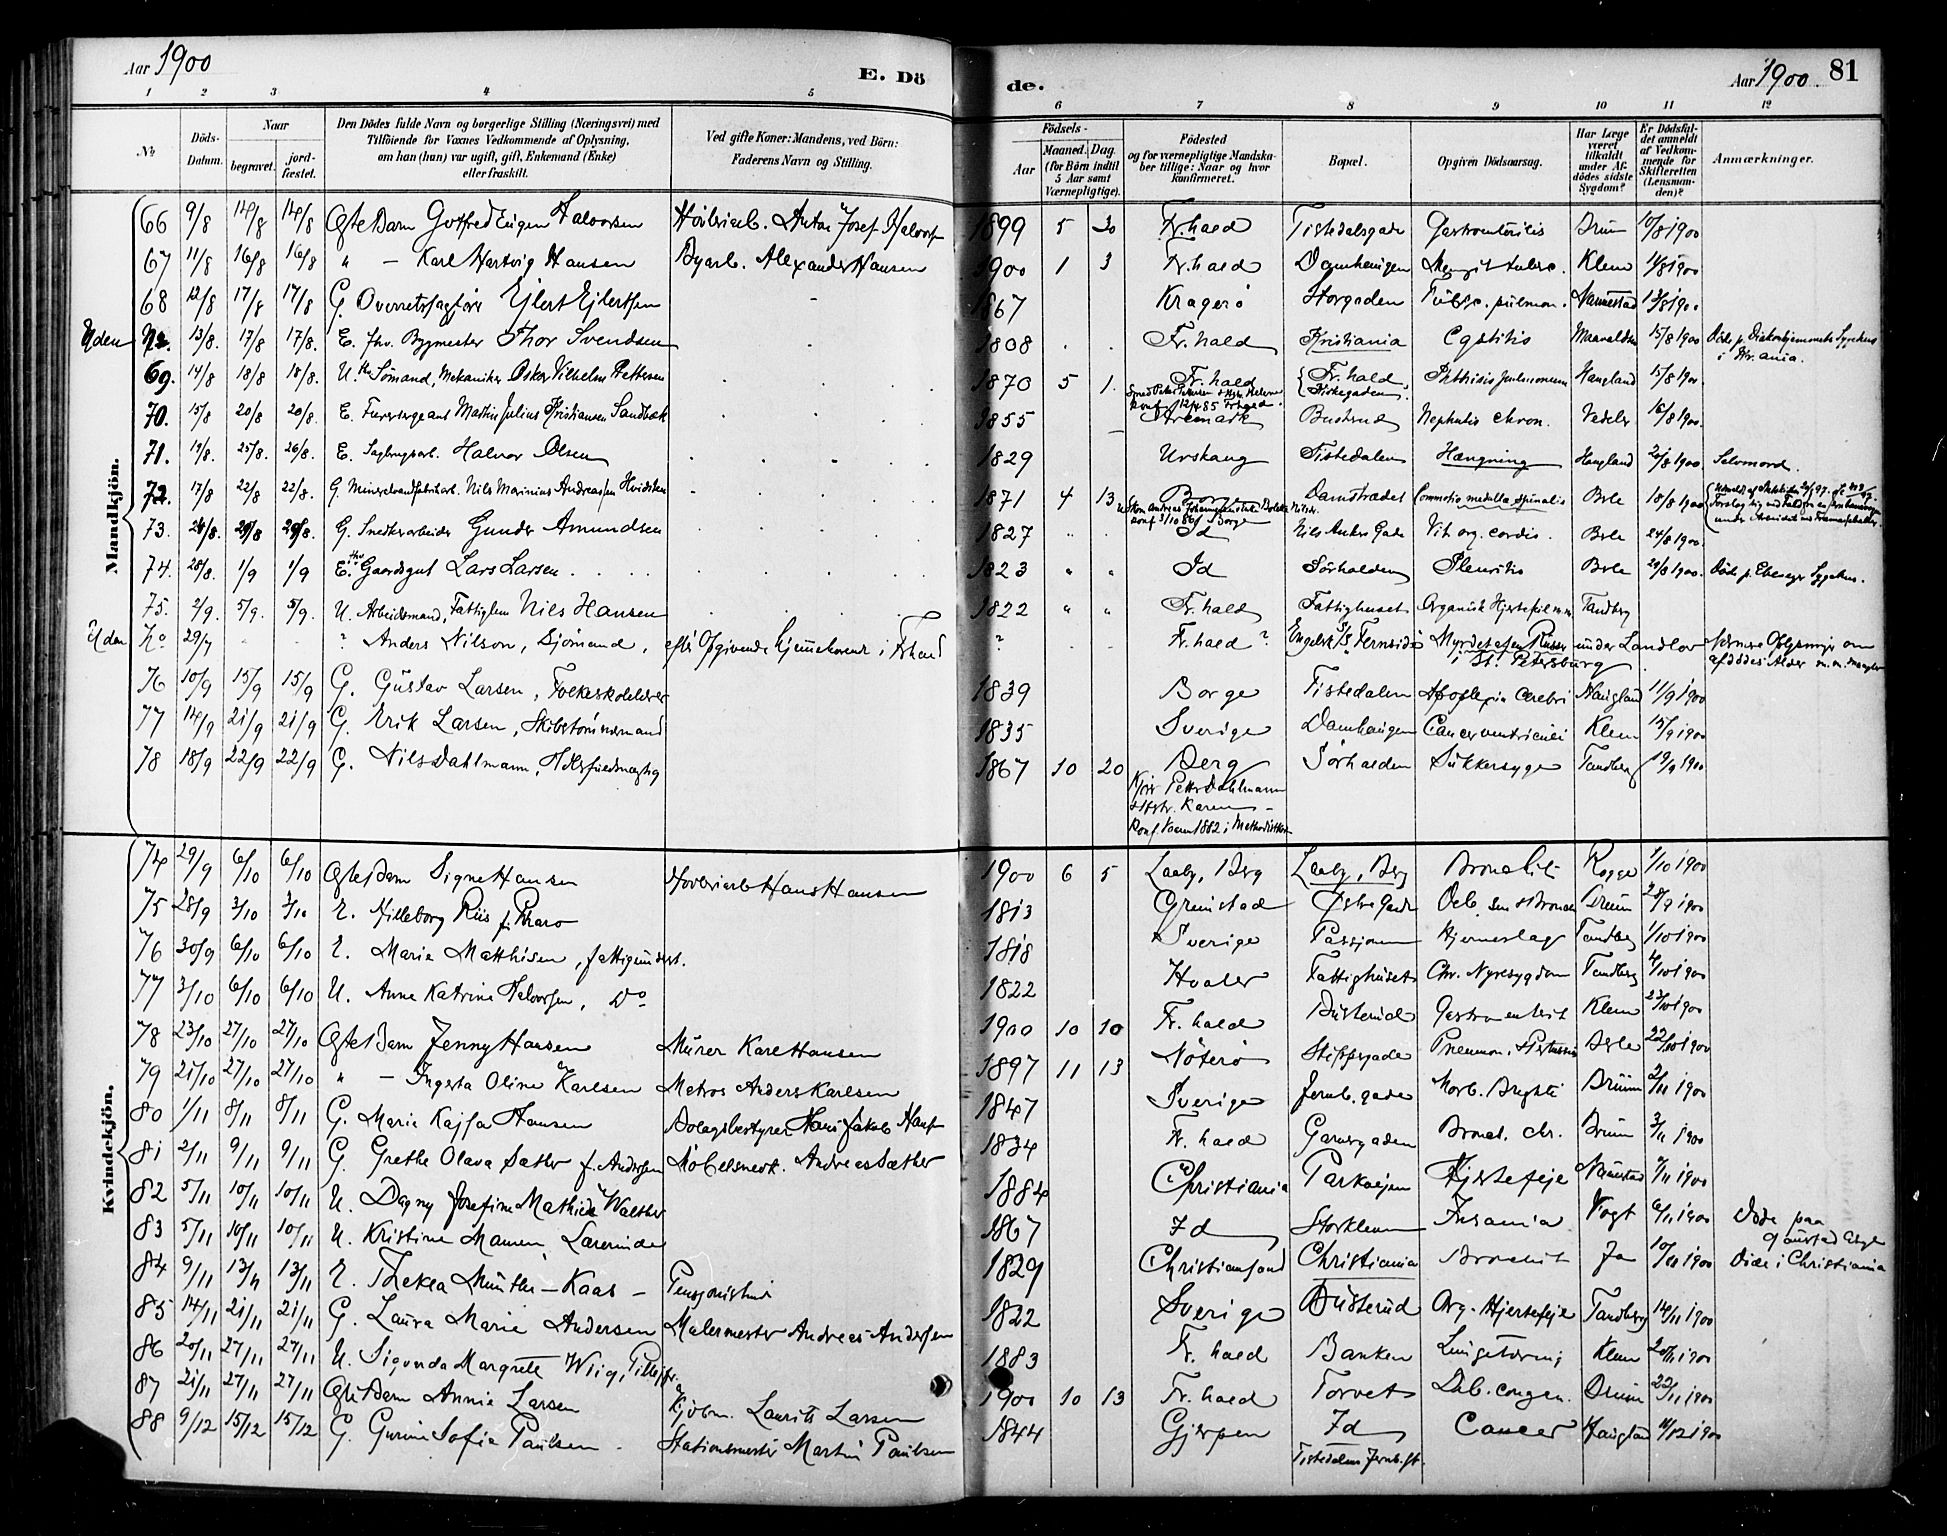 Aar 1900
E. Dö
de.
Aar 1900. 81
1 2 3 4 5 6 7 8 9 10 11 12
№ Döds-Datum. Naar begravet. jordfæstet. Den Dödes fulde Navn og borgerlige Stilling (Næringsvei) med Tilföiende for Voxnes Vedkommende af Oplysning, om han (hun) var ugift, gift, Enkemand (Enke) eller fraskilt. Ved gifte Koner: Mandens, ved Börn: Faderens Navn og Stilling. Födsels- Aar Maaned. Dag. (for Börn indtil 5 Aar samt Værnepligtige). Födested og for værnepligtige Mandskaber tillige: Naar og hvor konfirmeret. Bopæl. Opgiven Dödsaarsag. Har Læge været tilkaldt under Afdödes sidste Sygdom? Er Dödsfaldet anmeldt af Vedkommende for Skifteretten (Lensmanden)? Anmærkninger.
Mandkjön.
66 9/8 14/8 14/8 Ægte Barn Gotfred Eugen Halvorsen Høvleriarb. Anton Josef Halvorsen 1899 5 30 Fr.hald Tistedalsgade Gastroenteritis Bruun 10/8 1900
67 11/8 16/8 16/8 " — Karl Hartvig Hansen Byarb. Alexander Hansen 1900 1 3 Fr.hald Damhaugen Mengit. tuberc. Klem 11/8 1900
68 12/8 17/8 17/8 G. Overretssagfører Ejlert Ejlertsen 1867 Kragerø Storgaden Tuberc. pulmon. Nannestad 13/8 1900
Uden No. 13/8. 17/8 17/8. E. fhv. Bygmester Thor Svendsen 1808 Fr.hald Kristiania Cystitis 15/8 1900 Døde p. Diakonhjemmets Sygehus i Kr.ania.
69. 14/8 18/8 18/8. U. Sömand, Mekaniker Oskar Vilhelm Pettersen 1870 5 1. Fr.hald Fr.hald Kirkegaden Phthisis pulmonum Haugland 15/8 1900
70. 15/8 20/8 20/8. E. Furersergeant Mathis Julius Kristiansen Sandbæk 1855 Aremark Busterud Nephritis chron. Vedeler 16/8 1900.
71. 19/8. 25/8. 26/8. E. Sagbrugsarb. Halvor Olsen 1829 Urskaug Tistedalen Hængning Haugland 21/8 1900 Selvmord.
72. 17/8 22/8 22/8. G. Mineralvandfabrikarb. Nils Marinius Andreassen Hvidsten 1871 4 13 Borge Damstrædet Commotio medulla spinalis Berle 18/8 1900
73. 24/8. 29/8 29/8. G. Snedkerarbeider Gunder Amundsen 1827 Id Nils Ankers Gade Vit. org. cordis. Berle 24/8 1900.
74. 28/8. 1/9 1/9 E. fhv. Gaardsgut Lars Larsen 1823 Id Sörhalden Pleuritis Berle 29/8 1900. Döde p. Ebenezer Sygehus.
75. 2/9. 5/9. 5/9. U. Arbeidsmand, Fattiglem Nils Hansen 1822 Fr.hald Fattighuset Organisk Hjertefeil Tandberg
Uden No 29/7 ? Anders Nilson, Sjömand, efter Opgivende hjemmehørende i Fr.hald ? Fr.hald ? Engelsk S/S Fernside Myrdet af en Russer under Landlov i St. Petersburg Nærmere Oplysninger om afdødes Alder m.m. mangler
76 10/9 15/9 15/9 G. Gustav Larsen, Folkeskolelærer 1839 Borge Tistedalen Apoplexia cerebri Haugland 11/9 1900
77 14/9 21/9 21/9 G. Erik Larsen, Skibstømmermand 1835 Sverige Damhaugen Cancer ventriculi Klem 15/9 1900
78 18/9 22/9 22/9 G. Nils Dahlmann, 1867 10 20 Berg Sørhalden Sukkersyge Tandberg 19/9 1900
Konf. 1882 i Methodistkirken
Kvindekjön.
74 29/9 6/10 6/10 Ægte Barn Signe Hansen Hövleriarb Hans Hansen 1900 6 5 Laaby, Berg Laaby, Berg Bronchit Rogge 1/10 1900
75 28/9 3/10 3/10 E. Hilleborg Riis f. Pharo 1813 Grimstad Østre Gade Deb. sen & Bronch Bruun 28/9 1900
76 30/9 6/10 6/10 E. Marie Matthisen, fattigunderst. 1818 Sverige Passjonen Hjerneslag Tandberg 1/10 1900
77 3/10 6/10 6/10 U. Anne Katrine Halvorsen, Do 1822 Hvaler Fattighuset Chr. Nyresygdom Tandberg 4/10 1900
78 23/10 27/10 27/10 Ægte Barn Jenny Hansen Murer Karl Hansen 1900 10 10 Fr.hald Busterud Gastroenterit Klem 23/10 1900
79 21/10 27/10 27/10 " — Ingerta Oline Karlsen Matros Anders Karlsen 1897 11 13 Nöterö Steffesgade Pneumon. & Pertussis Berle 22/10 1900
80 1/11 8/11 8/11 G. Marie Kajsa Hansen Bolagsbestyrer Hans Jakob Hansen 1847 Sverige Jernb. gade Morb. Brighti Bruun 2/11 1900
81 2/11 9/11 9/11 G. Grethe Olava Sæther f. Andersen Möbelsnedk. Andreas Sæther 1834 Fr.hald Garvergaden Bronch. chr. Bruun 3/11 1900
82 5/11 10/11 10/11 U. Dagny Josefine Mathilde Walther 1884 Christiania Parkvejen Hjertefeje Nannestad 7/11 1900
83 5/11 10/11 10/11 U. Kristine Mamen, Lærerinde 1867 Id Storklem Insania Vogt 6/11 1900 Døde paa Gaustad Asyl
84 9/11 13/11 13/11 E. Thekea Münther-Kaas – Pensjonistinde 1829 Christiansand Christiania Bronchit Ja 10/11 1900 Döde i Christiania
85 14/11 21/11 21/11 G. Laura Marie Andersen Malermester Andreas Andersen 1822 Sverige Busterud Org. Hjertefeje Tandberg 14/11 1900
86 20/11 27/11 27/11 U. Sigunda Margrete Wiig, 1883 Fr. hald Banken Lungetæring Klem 20/11 1900
87 21/11 27/11 27/11 Ægte Barn Annie Larsen Kjöbm. Laurits Larsen 1900 10 13 Fr.hald Torvet Deb. congen. Bruun 22/11 1900
88 9/12 15/12 15/12 G. Gurine Sofie Paulsen Stationsmester Martin Paulsen 1844 Gjerpen Id Tistedalens Jernb.st. Cancer Haugland 11/12 1900